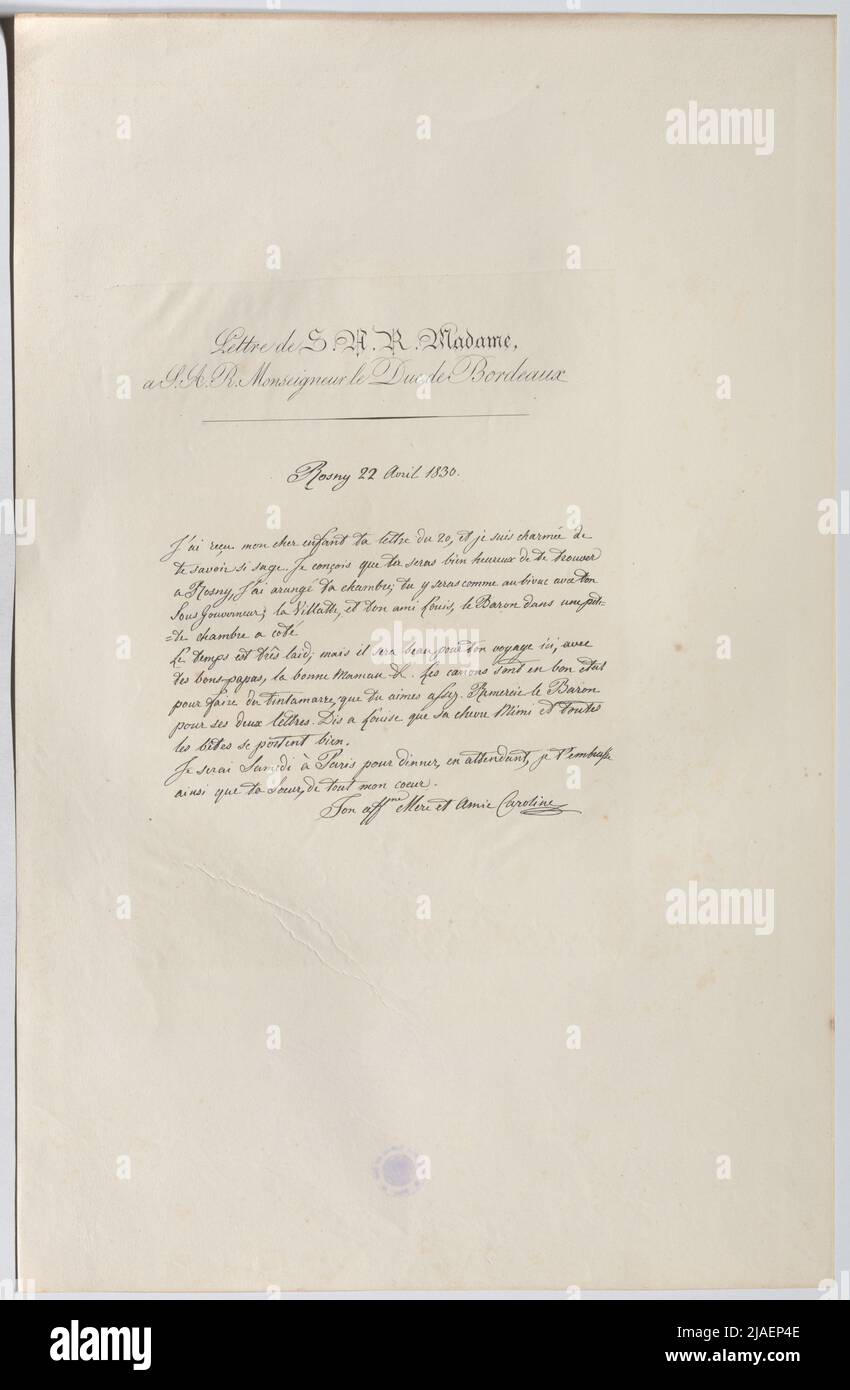 Lettre de S.A.R. Madame,
a S.A.R. Monseigneur le Duc de Bordeaux
Rosny 22 Avril 1830.
J'ai reçu mon cher enfant ta lettre du 20, et je suis charmée de
te savoir si sage. Je conçois que tu seras bien heureux de te trouver
a Rosny, j'ai arangé ta chambre; tu y seras comme au bivac avec ton
Sous Gouverneur; la Villatte, et ton ami Louis, le Baron dans une peti-
=te chambre a coté
Le temps est très laid; mais il sera beau pour ton voyage ici, avec
tes bons-papas, la bonne Maman &. Les canons sont en bon état
pour faire du tintamarre, que tu aimes assez. Remercie le Baron
pour ses deux lettres. Dis a Louise que sa chevre Mimi et toutes
les bêtes se portent bien.
Je serai Samedi à Paris pour dinner, en attendant, je t'embrasse
ainsi que ta Sœur, de tout mon coeur.
Ton affme Mere et Amie Caroline
alamy
alamy
Image ID: 2JAEP4E
www.alamy.com